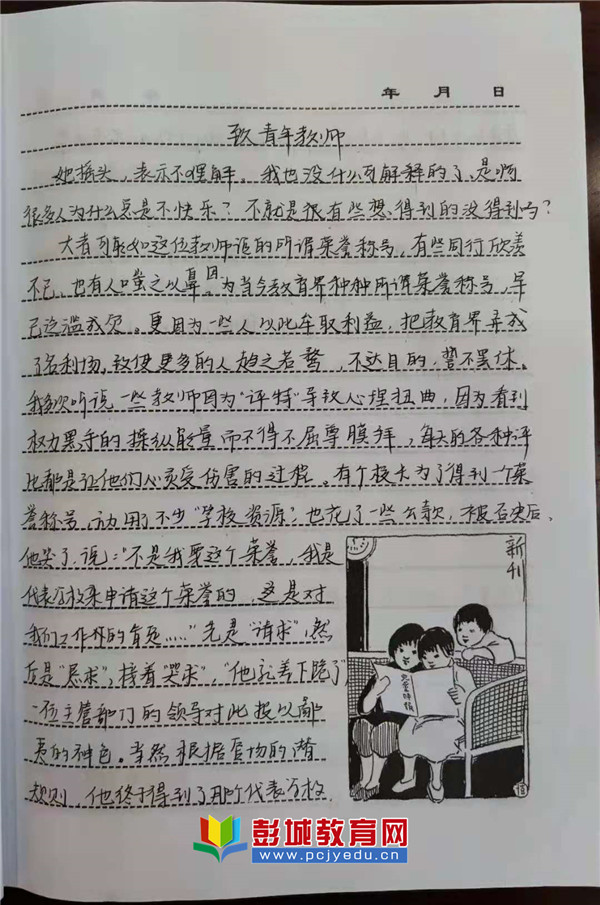 年 月 日
致青年教师
她摇头,表示不理解。我也没什么可解释的了,是啊
很多人为什么总是不快乐?不就是很有些想得到的没得到吗?
大者可能如这位教师追的所谓荣誉称号,有些同行欣羡
不已,也有人嗤之以鼻。因为当今教育界种种所谓荣誉称号,早
已泛滥成灾。更因为一些人以此牟取利益,把教育界弄成
了名利场,致使更多的人趋之若鹜,不达目的,誓不罢休。
我多次听说一些教师因为“评特”导致心理扭曲,因为看到
权力黑手的操纵能量而不得不屈尊膜拜,每天的各种评
比都是让他们心灵受伤害的过程。有个校长为了得到一个荣
誉称号,动用了不少“学校资源”也花了一些公款,被否决后、
他哭了,说:“不是我要这个荣誉,我是
代表学校来申请这个荣誉的,这是对
我们工作的肯定……”先是“请求”,然
后是“恳求”,接着“哭求”,“他就差下跪了”
一位主管部门的领导对此投以鄙
夷的神色。当然根据官场的潜
规则,他终于得到了那个代表学校
新刊
彭城教育网
www.pcjyedu.cn